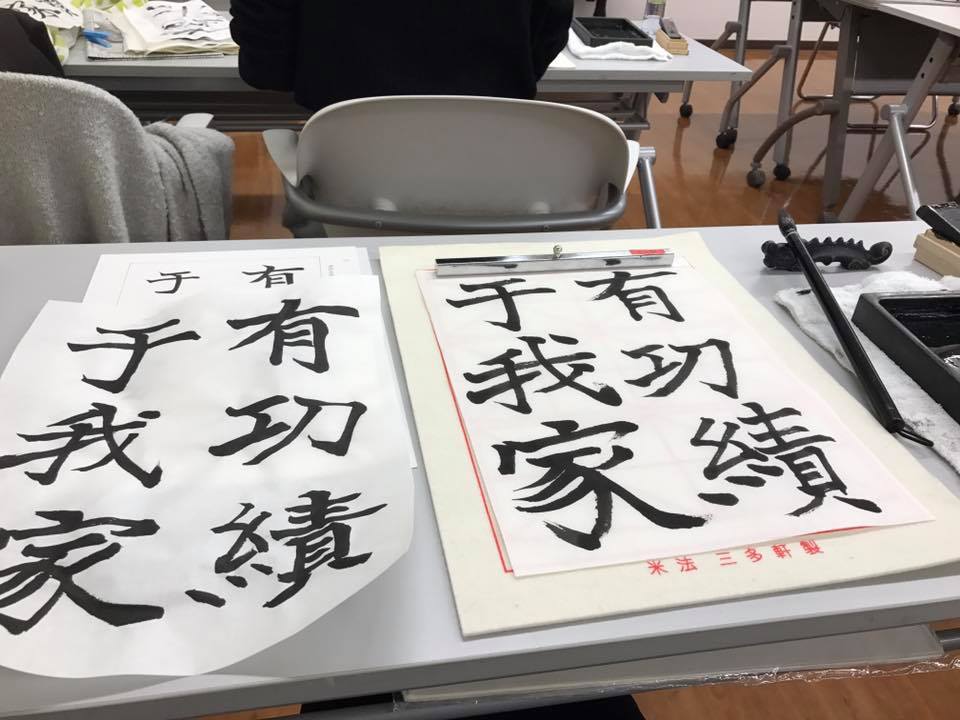 有功績
于我家
有功績
于我家
有
于
米法 三多軒製